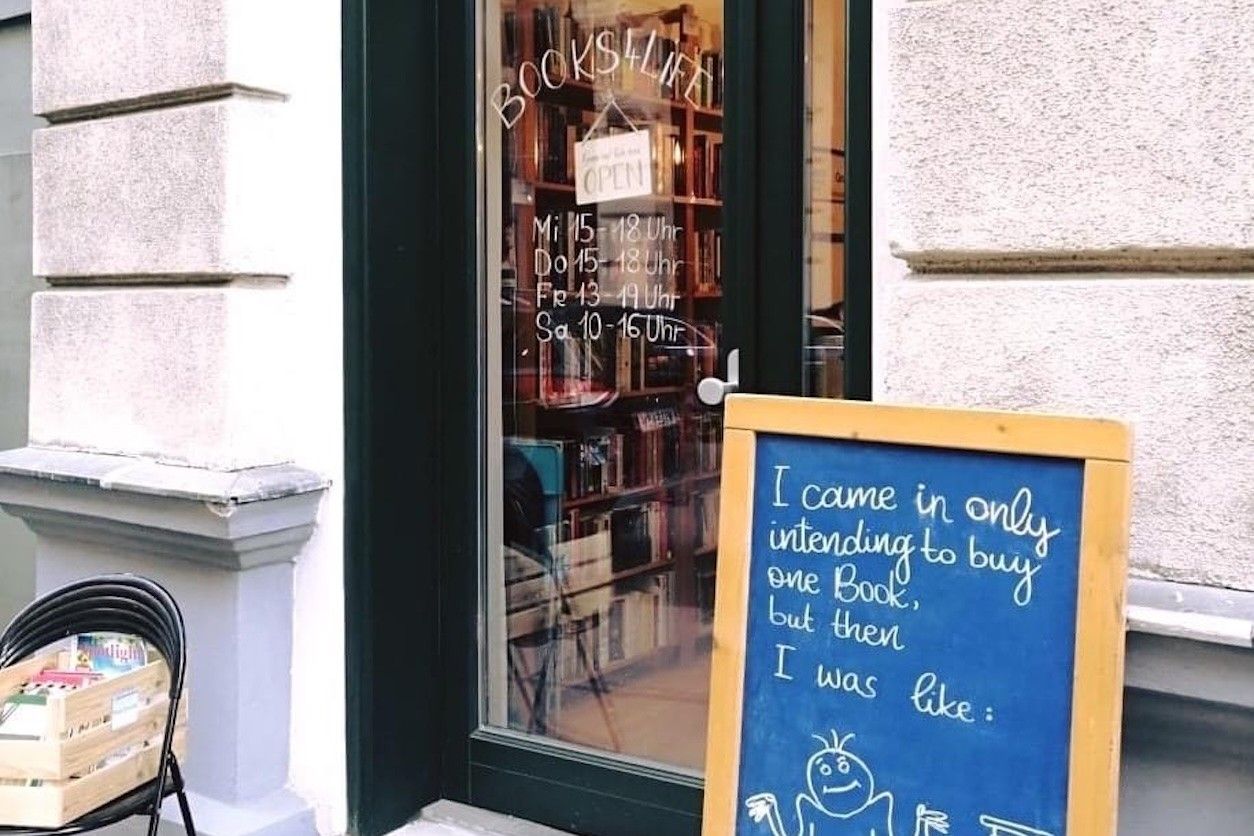 BOOKS4LIFE
OPEN
Mi 15-18 Uhr
Do 15-18 Uhr
FR 13-19 Uhr
Sa 10-16 Uhr
I came in only
intending to buy
one Book,
but then
I was like:
Spotlight